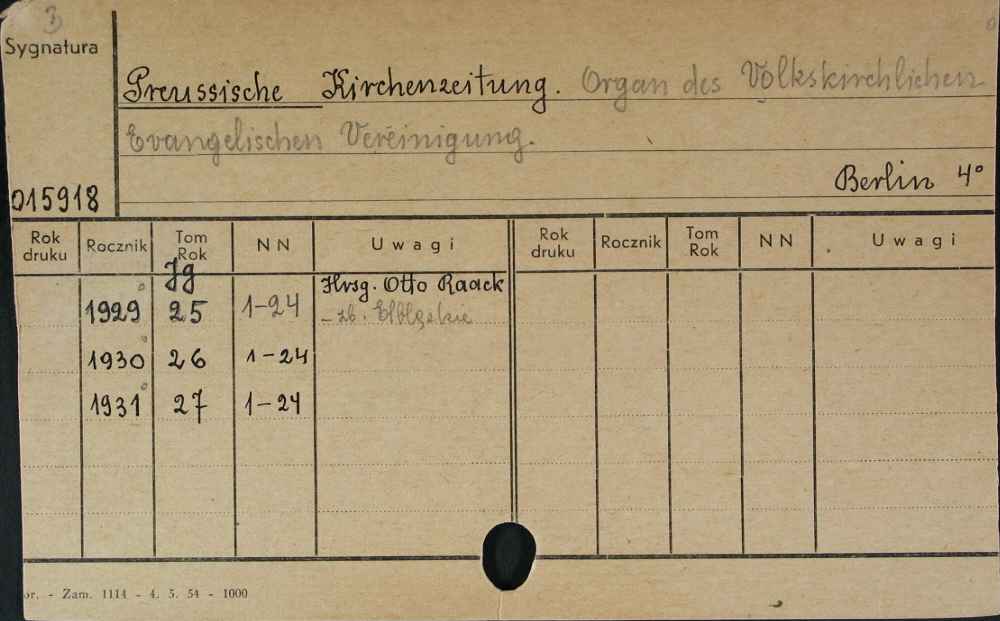 3
Sygnatura
Preussische Kirchenzeitung. Organ des Volkskirchlichen
Evangelischen Vereinigung.
Berlin 4°
015918
Rok druku Rocznik Tom Rok NN Uwagi Rok druku Rocznik Tom Rok NN Uwagi
Jg Hrsg. Otto Raack
1929 25 1-24 - zb.
1930 26 1-24
1931 27 1-24
or. - Zam. 1114 - 4. 5. 54 - 1000